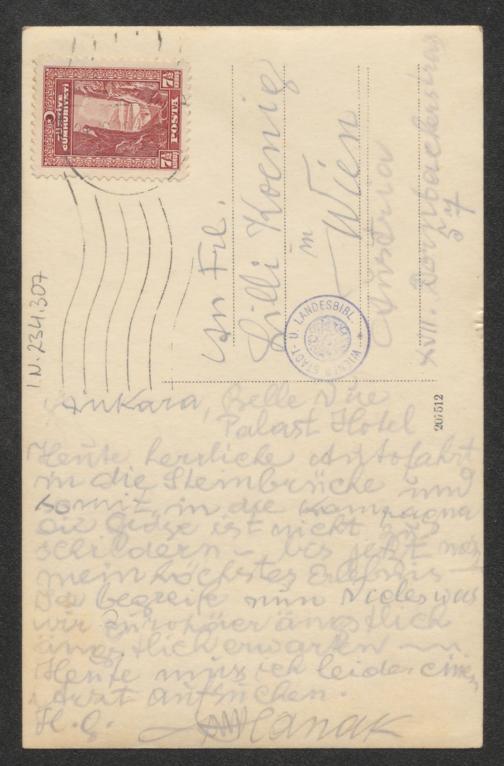 TÜRKİYE
CUMHURİYETİ
POSTA
7½ 7½
An Frl.
Lilli Koenig
in
Wien
Austria
XVII. Dornbacherstrass
57
WIENER STADT- U. LANDESBIBL.
IN. 234.307
207512
Ankara, Belle Vue
Palast Hotel
Heute herrliche Autofahrt
in die Steinbrüche und
somit in die Kampagna
die Größe ist nicht zu
schildern – bis jetzt
mein höchstes Erlebnis –
Da begreife nun Vieles was
wir Europäer ängstlich
ängstlich erwarten –
Heute muss ich leider einen
Arzt aufsuchen.
H. G.
Hanak